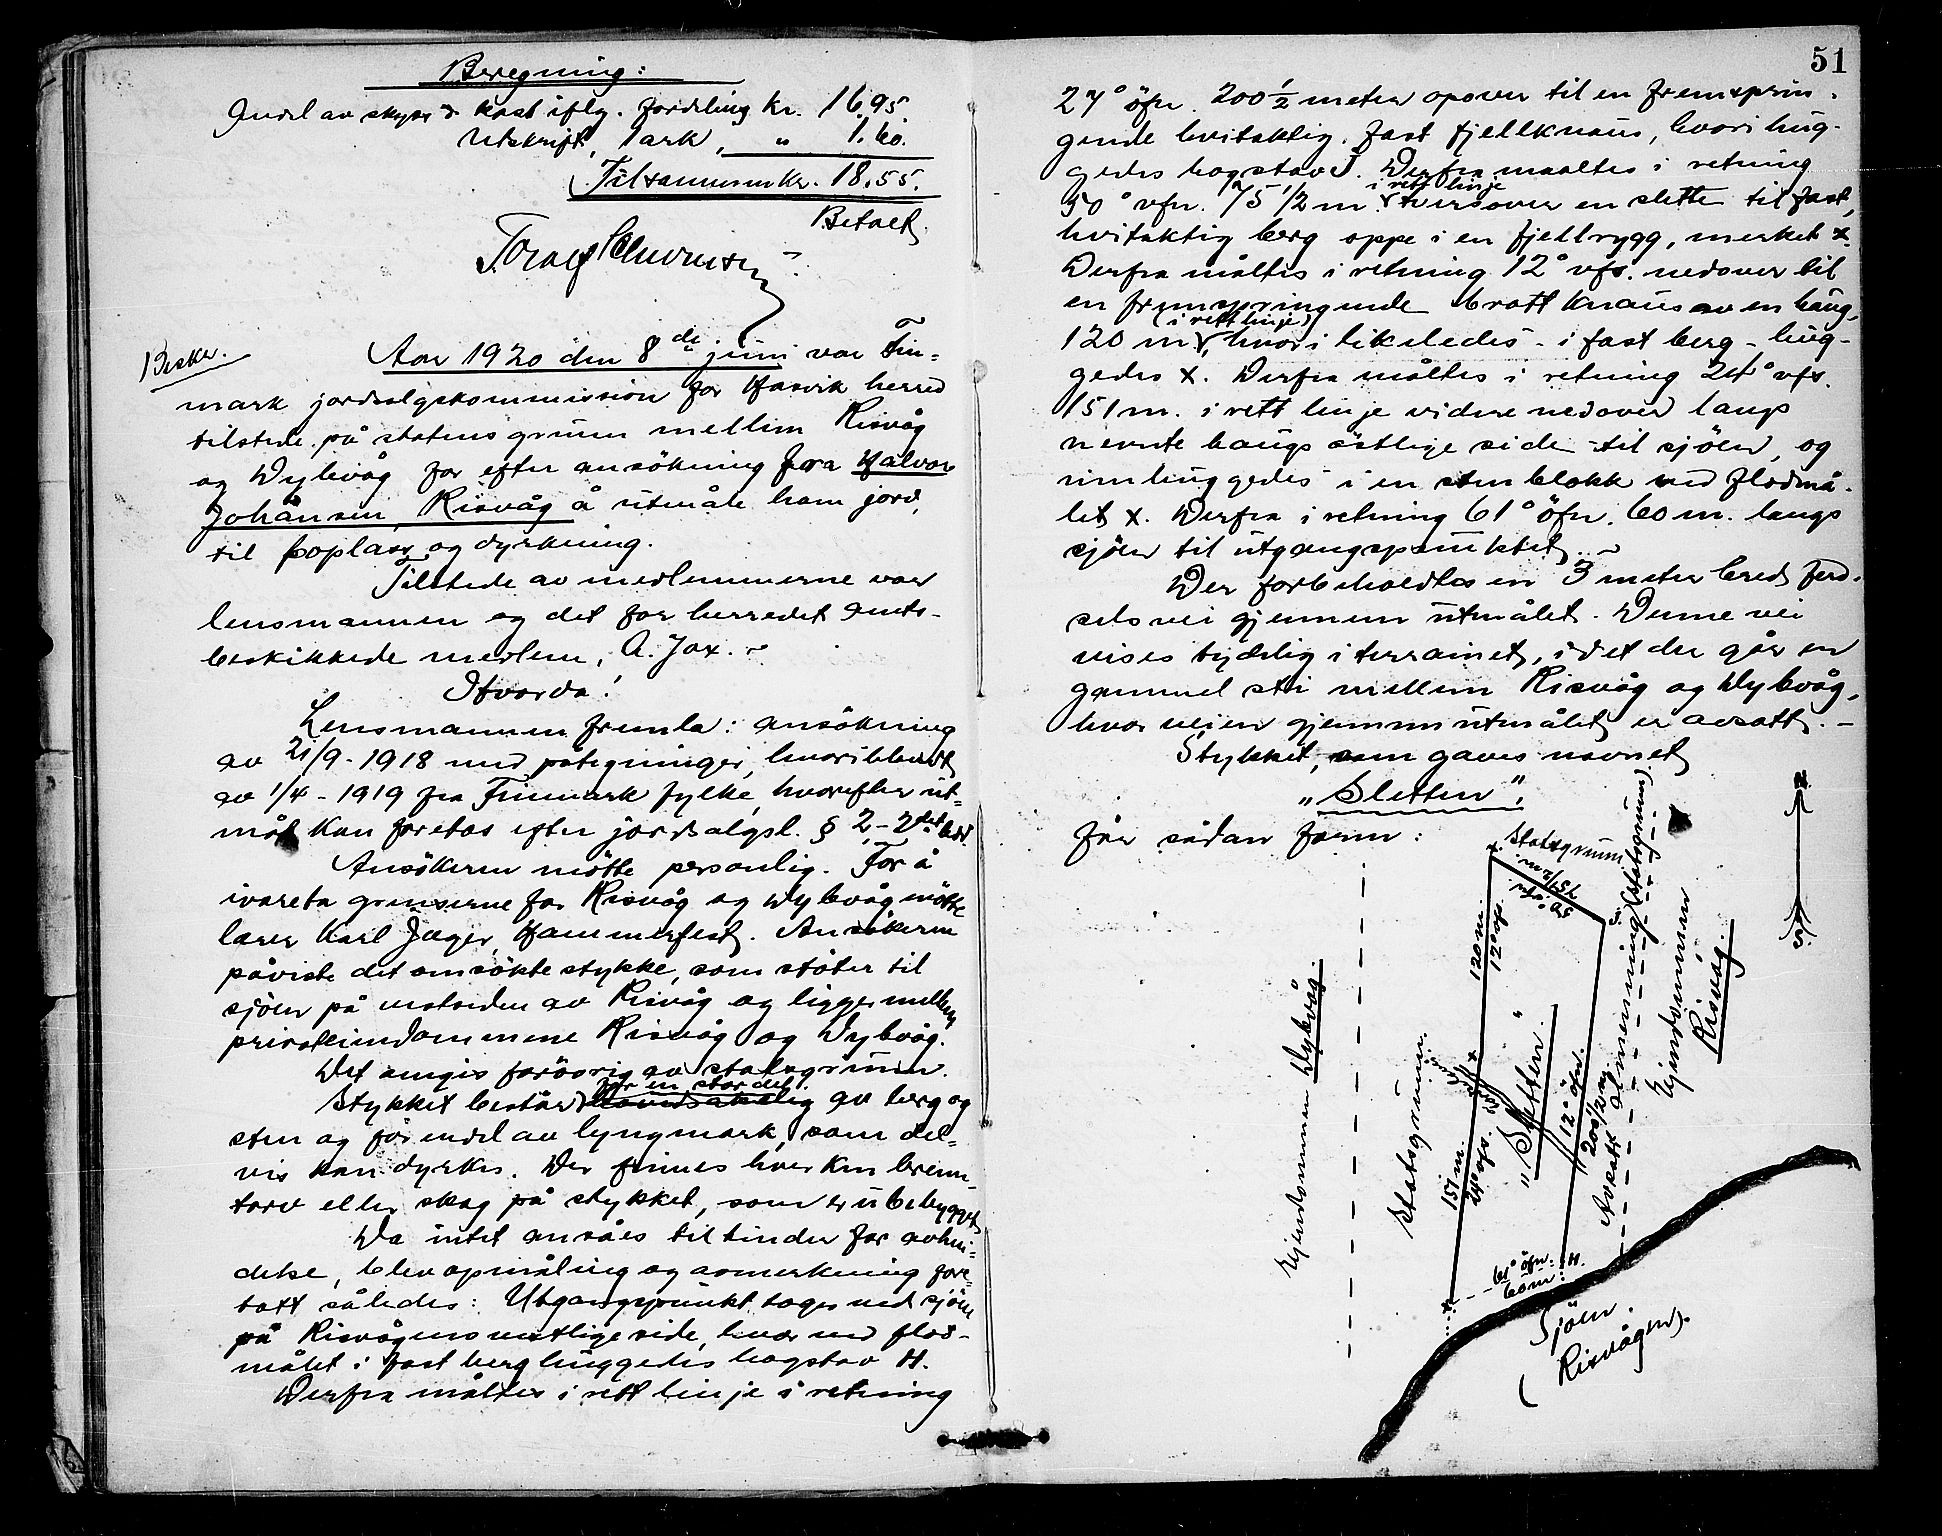 Beregning:
Andel av skyss & kost iflg. fordeling Kr. 16.95
Utskrift, 1 ark, " 1.60.
Tilsammen kr. 18.55.
Betalt
Beskr.
Aar 1920 den 8de juni var Fin=
mark jordsalgskommission for Hasvik herred
tilstede på statens grunn mellem Risvåg
og Dybvåg for efter ansökning fra Halvor
Johansen, Risvåg å utmåle ham jord,
til boplass og dyrkning.
Tilstede av medlemmerne var
lensmannen og det for herredet amts-
beskikkede medlem, A. Jox.
Hvorda!
Lensmannen fremla: ansökning
av 21/9-1918 med påtegninger, hvoriblandt
av 1/4-1919 fra Finmark fylke, hvorefter ut=
mål kan foretas efter jordsalgsl. § 2-2det ledd
Ansökeren mötte personlig. For å
ivareta grenserne for Risvåg og Dybvåg mötte
lærer Karl Jæger, Hammerfest. Ansökeren
påviste det ansökte stykke, som stöter til
sjöen på vestsiden av Risvåg og ligger mellem
privateiendommene Risvåg og Dybvåg.
Det omgis forövrig av statsgrunn.
for en stor del
Stykket består hovedsakelig av berg og
sten og for endel av lyngmark, som del=
vis kan dyrkes. Der finnes hverken brenn-
torv eller skog på stykket, som er ubebygget
Da intet ansåes til hinder for avhen=
delse, blev opmåling og avmerkning fore=
tatt således: Utgangspunkt tages ved sjöen
på Risvågens vestlige side, hvor ved flod-
målet i fast berg huggedes bogstav H.
Derfra måltes i rett linje i retning
51
27° öfn. 200 1/2 meter opover til en fremsprin-
gende hvitaktig fast fjellknaus, hvori hug-
gedes bogstav J. Derfra maaltes i retning
i rett linje
50° vfn. 75 1/2 m. tversover en slette til fast,
hvitaktig berg oppe i en fjellrygg, merket x.
Derfra måltes i retning 12° vfs. nedover til
en fremspringende bratt knaus av en haug,
(i rett linje)
120 m, hvori likeledes - i fast berg - hug-
gedes x. Derfra måltes i retning 24° vfs.
151 m. i rett linje videre nedover langs
nevnte haugs östlige side til sjöen, og
innhuggedes i en stenblokk ved flodmå-
let x. Derfra i retning 61° öfn. 60 m. langs
sjöen til utgangspunktet.
Der forbeholdtes en 3 meter bred ferd-
selsvei gjennem utmålet. Denne vei
vises tydelig i terrainet, idet der går en
gammel sti mellem Risvåg og Dybvåg,
hvor veien gjennem utmålet er avsatt.
Stykket, som gaves navnet
"Sletten",
får sådan form:
Statsgrunn
75 1/2 m.
50° vfn
120 m.
12° vfs.
151 m.
24° vfs.
"Sletten".
12° öfn.
200 1/2 m
Avsatt almenning (statsgrunn)
Eiendommen
Risvåg.
Statsgrunn.
Eiendommen Dybvåg.
61° öfn.
60 m.
H.
Sjöen.
(Risvågen).
N
S.